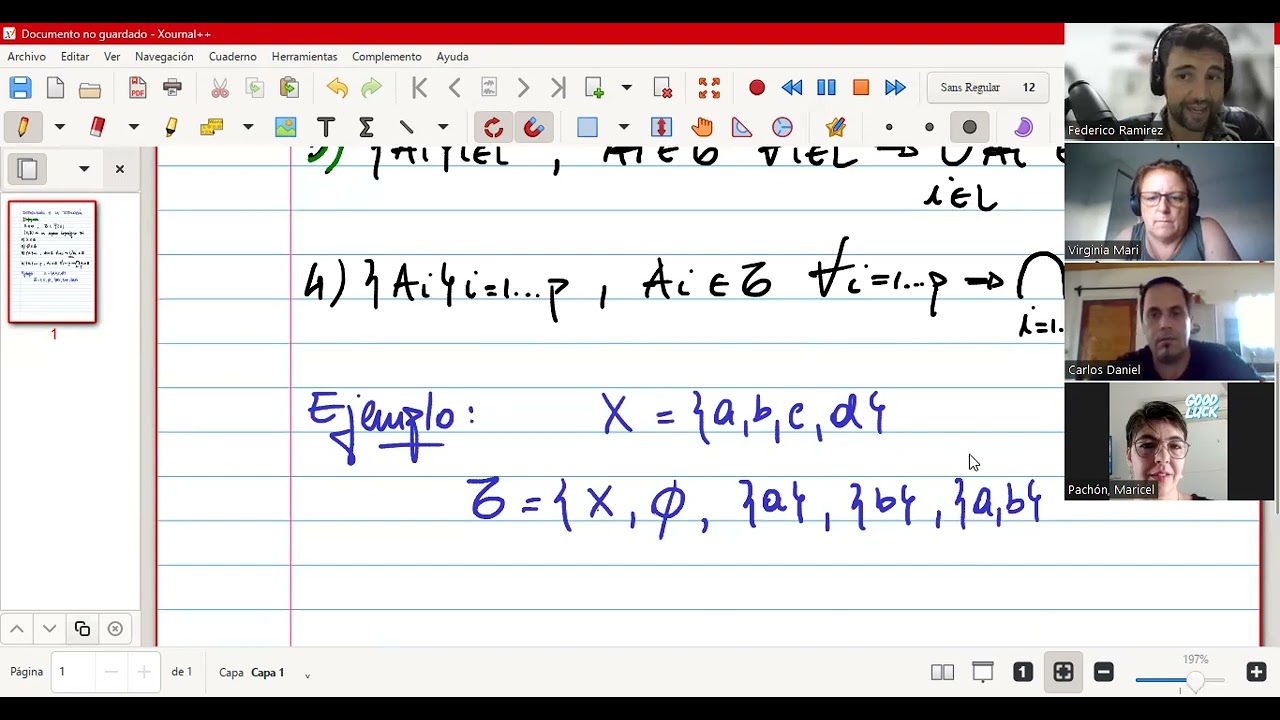 Documento no guardado - Xournal++
Archivo Editar Ver Navegación Cuaderno Herramientas Complemento Ayuda
Sans Regular 12
3) {Ai}i∈L , Ai ∈ τ ∀i∈L → ∪Ai ∈
i∈L
4) {Ai}i=1...p , Ai ∈ τ ∀i=1...p → ∩
i=1..
Ejemplo: X = {a,b,c,d}
τ = {X, ϕ, {a}, {b}, {a,b}
1
Federico Ramirez
Virginia Mari
Carlos Daniel
GOOD LUCK
Pachón, Maricel
Página 1 de 1 Capa Capa 1 197%